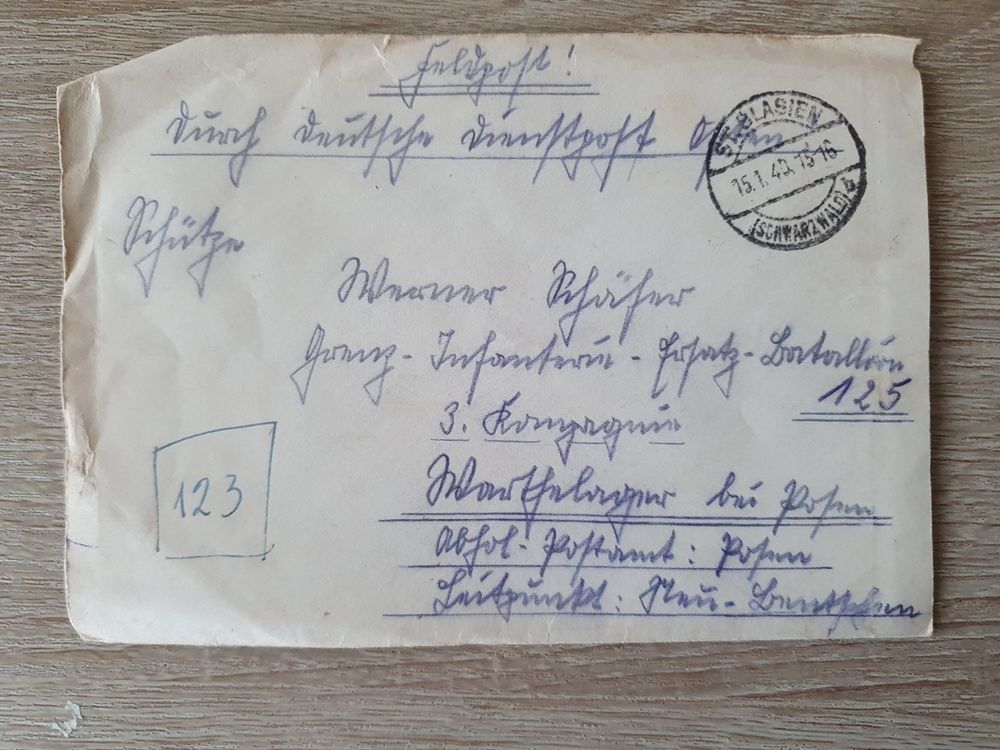 Feldpost!
Durch deutsche Dienstpost Osten
ST. BLASIEN
15.1.40.15-16
(SCHWARZWALD) d
Schütze
Werner Schäfer
Grenz-Infanterie-Ersatz-Bataillon
125
3. Kompagnie
123
Warthelager bei Posen
Abhol-Postamt: Posen
Leitpunkt: Neu-Bentschen